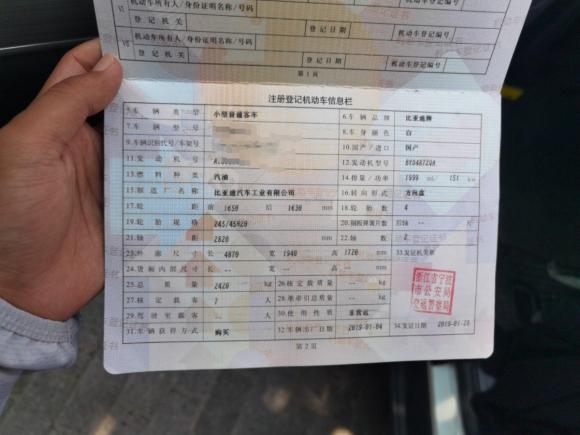 机动车所有人/身份证明名称/号码
登记机关 登记日期 机动车登记编号
机动车所有人/身份证明名称/号码
登记机关 登记日期 机动车登记编号
第1页
注册登记机动车信息栏
5.车辆类型 小型普通客车 6.车辆品牌 比亚迪牌
7.车辆型号 8.车身颜色 白
9.车辆识别代号/车架号 10.国产/进口 国产
11.发动机号 12.发动机型号 BYD487ZQA
13.燃料种类 汽油 14.排量/功率 1999 ml/ 151 kw
15.制造厂名称 比亚迪汽车工业有限公司 16.转向形式 方向盘
17.轮距 前 1650 后 1630 mm 18.轮胎数 4
19.轮胎规格 245/45R20 20.钢板弹簧片数 后轴 --
21.轴距 2820 mm 22.轴数 2
23.外廓尺寸 长 4870 宽 1940 高 1720 mm 33.发证机关章
24.货厢内部尺寸 长 -- 宽 -- 高 -- mm
25.总质量 2420 kg 26.核定载质量 -- kg
27.核定载客 7 人 28.准牵引总质量 -- kg
29.驾驶室载客 -- 人 30.使用性质 非营运
31.车辆获得方式 购买 32.车辆出厂日期 2019-01-04 34.发证日期
浙江省宁波
市公安局
交通警察局
第2页